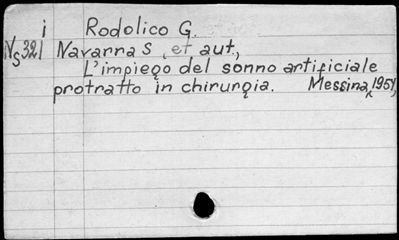 i Rodolico G.
Ns321 Navarra S, et aut.,
L'impiego del sonno artificiale
protratto in chirurgia. Messina, 1951,